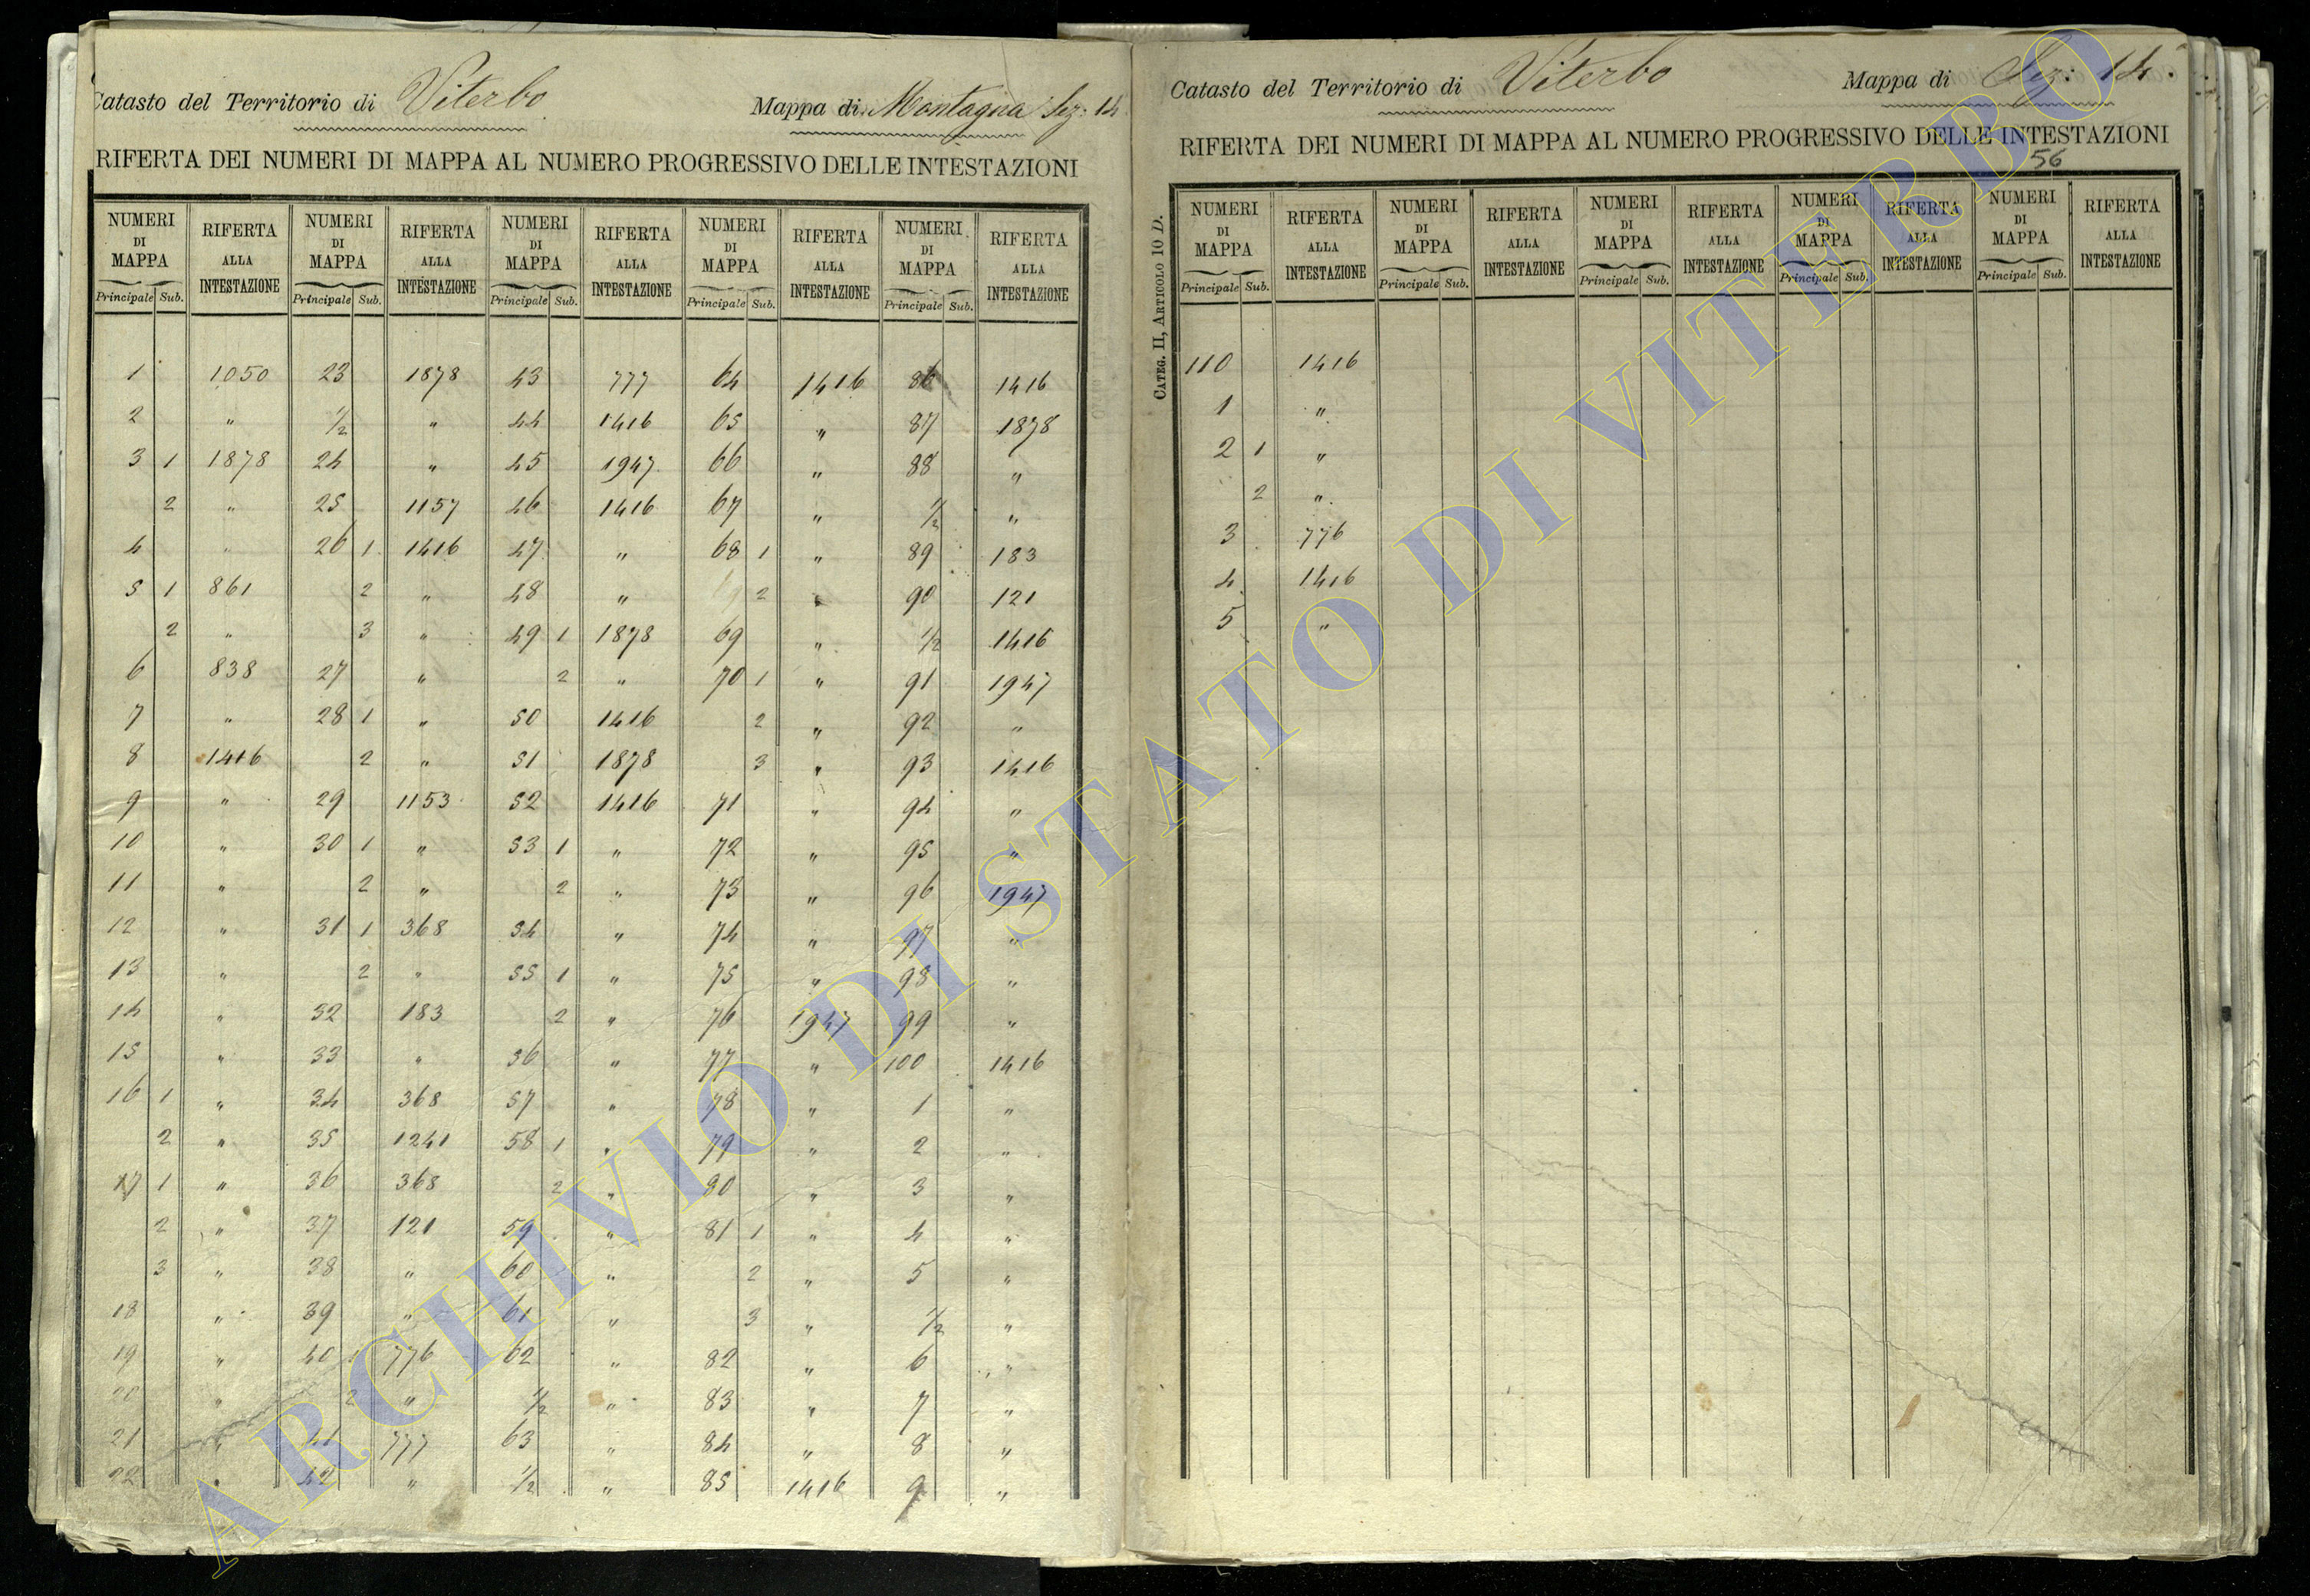 Catasto del Territorio di Viterbo Mappa di Montagna Sez: 14
RIFERTA DEI NUMERI DI MAPPA AL NUMERO PROGRESSIVO DELLE INTESTAZIONI
NUMERI DI MAPPA RIFERTA ALLA INTESTAZIONE NUMERI DI MAPPA RIFERTA ALLA INTESTAZIONE NUMERI DI MAPPA RIFERTA ALLA INTESTAZIONE NUMERI DI MAPPA RIFERTA ALLA INTESTAZIONE NUMERI DI MAPPA RIFERTA ALLA INTESTAZIONE
Principale Sub. Principale Sub. Principale Sub. Principale Sub. Principale Sub.
1 1050 23 1878 43 777 64 1416 86 1416
2 " 1/2 " 44 1416 65 " 87 1878
3 1 1878 24 " 45 1947 66 " 88 "
2 " 25 1157 46 1416 67 " 1/2 "
4 " 26 1 1416 47 " 68 1 " 89 183
5 1 861 2 " 48 " 2 " 90 121
2 " 3 " 49 1 1878 69 " 1/2 1416
6 838 27 " 2 " 70 1 " 91 1947
7 " 28 1 " 50 1416 2 " 92 "
8 1416 2 " 51 1878 3 " 93 1416
9 " 29 1153 52 1416 71 " 94 "
10 " 30 1 " 53 1 " 72 " 95 "
11 " 2 " 2 " 73 " 96 1947
12 " 31 1 368 54 " 74 " 97 "
13 " 2 " 55 1 " 75 " 98 "
14 " 32 183 2 " 76 1947 99 "
15 " 33 " 56 " 77 " 100 1416
16 1 " 34 368 57 " 78 " 1 "
2 " 35 1241 58 1 " 79 " 2 "
17 1 " 36 368 2 " 80 " 3 "
2 " 37 121 59 " 81 1 " 4 "
3 " 38 " 60 " 2 " 5 "
18 " 39 " 61 " 3 " 1/2 "
19 " 40 1 776 62 " 82 " 6 "
20 " 2 " 1/2 " 83 " 7 "
21 " 41 777 63 " 84 " 8 "
22 " 42 " 1/2 " 85 1416 9 "
Catasto del Territorio di Viterbo Mappa di Sez: 14.
RIFERTA DEI NUMERI DI MAPPA AL NUMERO PROGRESSIVO DELLE INTESTAZIONI
56
CATEG. II, ARTICOLO 10 D.
NUMERI DI MAPPA RIFERTA ALLA INTESTAZIONE NUMERI DI MAPPA RIFERTA ALLA INTESTAZIONE NUMERI DI MAPPA RIFERTA ALLA INTESTAZIONE NUMERI DI MAPPA RIFERTA ALLA INTESTAZIONE NUMERI DI MAPPA RIFERTA ALLA INTESTAZIONE
Principale Sub. Principale Sub. Principale Sub. Principale Sub. Principale Sub.
110 1416
1 "
2 1 "
2 "
3 776
4 1416
5 "
ARCHIVIO DI STATO DI VITERBO